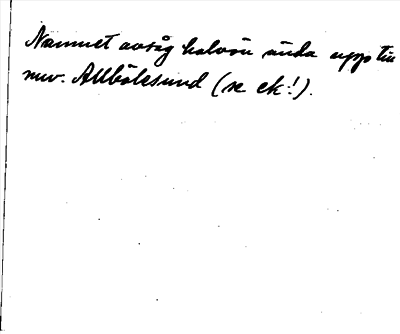 Namnet avsåg halvön ända upp till
nuv. Allbäksund (se ek!).